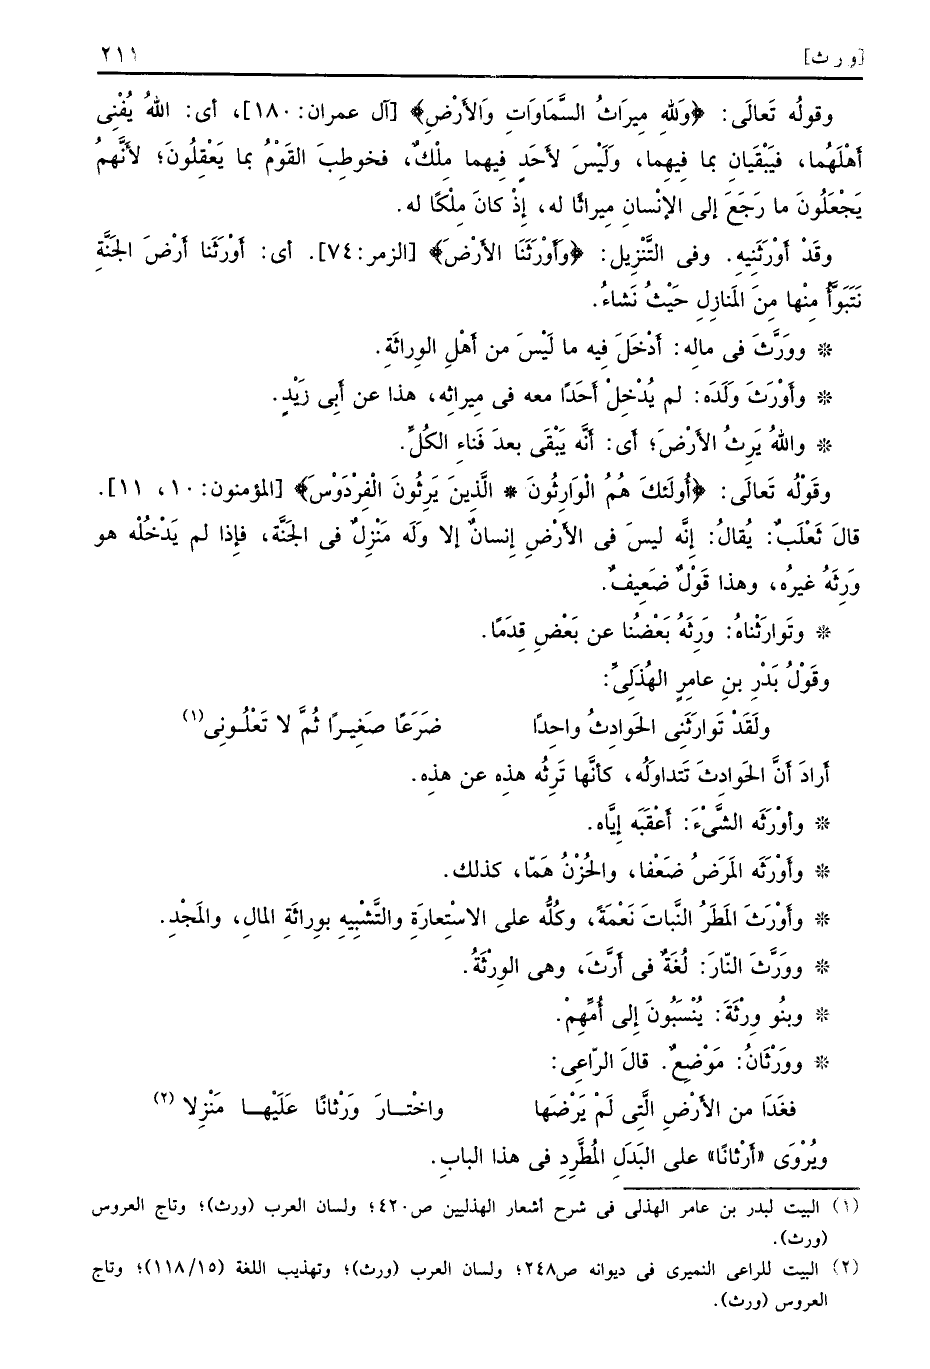 [و ر ث] ٢١١
وقولُه تَعالَى: ﴿وَللهِ مِيرَاثُ السَّمَاوَاتِ وَالأَرْضِ﴾ [آل عمران: ١٨٠]، أى: اللهُ يُفْنِى
أهْلَهُما، فَيَبْقَيانِ بما فِيهِما، ولَيْسَ لأحَدٍ فِيهما مِلْكٌ، فخوطِبَ القَوْمُ بما يَعْقِلُونَ؛ لأنَّهمُ
يَجْعَلُونَ ما رَجَعَ إلى الإنْسانِ مِيراثًا له، إذْ كانَ مِلْكًا له.
وقَدْ أوْرَثَنِيه. وفى التَّنْزِيل: ﴿وَأَوْرَثَنَا الأَرْضَ﴾ [الزمر:٧٤]. أى: أوْرَثَنا أرْضَ الجَنَّةِ
نَتَبَوَّأُ مِنْها مِنَ المَنازِلِ حَيْثُ نَشاءُ.
* ووَرَّثَ فى مالِه: أدْخَلَ فِيه ما لَيْسَ من أهْلِ الوِراثَةِ.
* وأوْرَثَ وَلَدَه: لم يُدْخِلْ أحَدًا معه فى مِيراثِه، هذا عن أبِى زَيْدٍ.
* واللهُ يَرِثُ الأرْضَ؛ أى: أنَّه يَبْقَى بعدَ فَناءِ الكُلِّ.
وقَوْلُه تَعالَى: ﴿أُولَئكَ هُمُ الْوَارِثُونَ * الَّذِينَ يَرِثُونَ الْفِرْدَوْسَ﴾ [المؤمنون: ١٠، ١١].
قالَ ثَعْلَبٌ: يُقالُ: إنَّه ليسَ فى الأرْضِ إنسانٌ إلا ولَه مَنْزِلٌ فى الجَنَّة، فإذا لم يَدْخُلْه هو
وَرِثَهُ غيرُه، وهذا قَوْلٌ ضَعِيفٌ.
* وتَوارَثْناهُ: وَرِثَهُ بَعْضُنا عن بَعْضٍ قِدَمًا.
وقَوْلُ بَدْرِ بنِ عامِرٍ الهُذَلِىِّ:
ولَقَدْ تَوارَثَنِى الحَوادِثُ واحِدًا ضَرَعًا صَغِيرًا ثُمَّ لا تَعْلُونِى(١)
أرادَ أنَّ الحَوادِثَ تَتداوَلُه، كأنَّها تَرِثُه هذه عن هذِه.
* وأوْرَثَه الشَّىْءَ: أعْقَبَه إيَّاه.
* وأوْرَثَه المَرَضُ ضَعْفا، والحُزْنُ هَمّا، كذلك.
* وأوْرَثَ المَطَرُ النَّباتَ نَعْمَةً، وكلُّه على الاسْتِعارَةِ والتَّشْبِيهِ بوِراثَةِ المال، والمَجْدِ.
* ووَرَّثَ النّارَ: لُغَةٌ فى أرَّثَ، وهى الوِرْثَةُ.
* وبنُو وِرْثَةَ: يُنْسَبُونَ إلى أُمِّهِمْ.
* ووَرْثَانُ: مَوْضِعٌ. قالَ الرّاعِى:
فغَدَا من الأرْضِ الَّتِى لَمْ يَرْضَها واخْتارَ وَرْثانًا عَلَيْها مَنْزِلا (٢)
ويُرْوَى «أرْثانًا» على البَدَلِ المُطَّرِدِ فى هذا البابِ.
(١) البيت لبدر بن عامر الهذلى فى شرح أشعار الهذليين ص٤٢٠؛ ولسان العرب (ورث)؛ وتاج العروس
(ورث).
(٢) البيت للراعى النميرى فى ديوانه ص٢٤٨؛ ولسان العرب (ورث)؛ وتهذيب اللغة (١١٨/١٥)؛ وتاج
العروس (ورث).